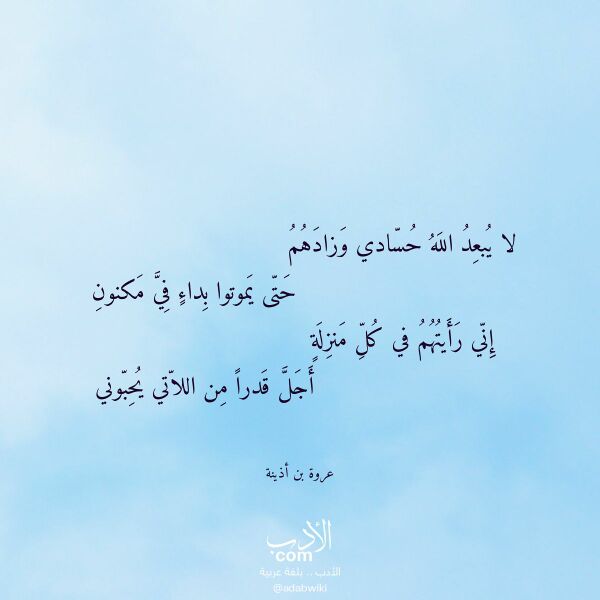 لا يُبعِدُ اللَهُ حُسّادي وَزادَهُمُ
حَتّى يَموتوا بِداءٍ فِيَّ مَكنونِ
إِنّي رَأَيتُهُمُ في كُلِّ مَنزِلَةٍ
أَجَلَّ قَدراً مِن اللاّتي يُحِبّوني
عروة بن أذينة
الأدب
com
الأدب .. بلغة عربية
@adabwiki